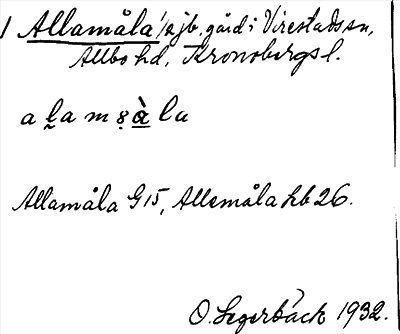 1 Allamåla 1/2 jb. gård i Virestads sn,
Allbo hd, Kronobergs l.
Allamåla G 15, Allemåla hb 26.
O. Segerbäck 1932.